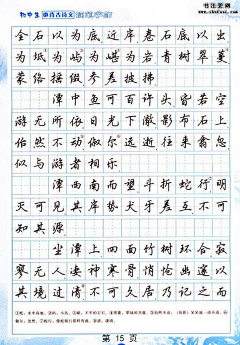 书法密码
初中生必背古诗文
全石以为底近岸卷石底以出
为坻为屿为嵁为岩青树翠蔓
蒙络摇缀参差披拂
潭中鱼可百许头皆若空
游无所依日光下澈影布石上
佁然不动俶尔远逝往来翕忽
似与游者相乐
潭西南而望斗折蛇行明
灭可见其岸势犬牙差互不可
知其源
坐潭上四面竹树环合寂
寥无人凄神寒骨悄怆幽邃以
其境过清不可久居乃记之而
第 15 页